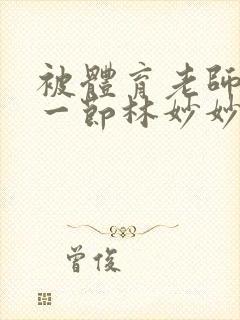 被體育老師
一節林妙妙
曾俊